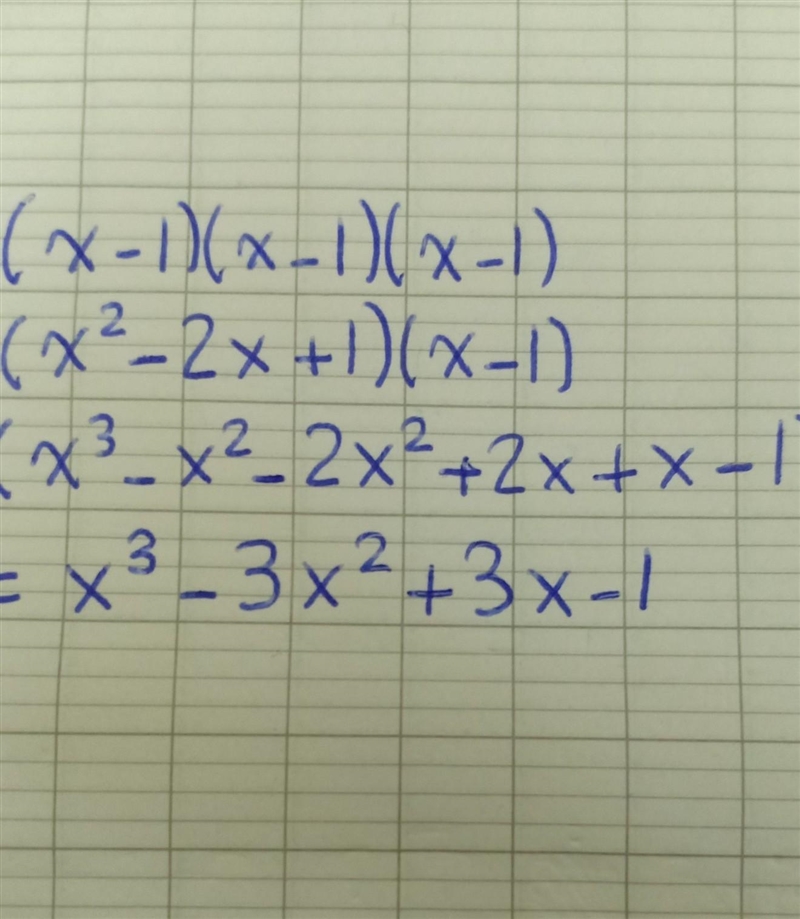 (x-1)(x-1)(x-1)
(x²-2x+1)(x-1)
(x³-x²-2x²+2x+x-1)
= x³-3x²+3x-1